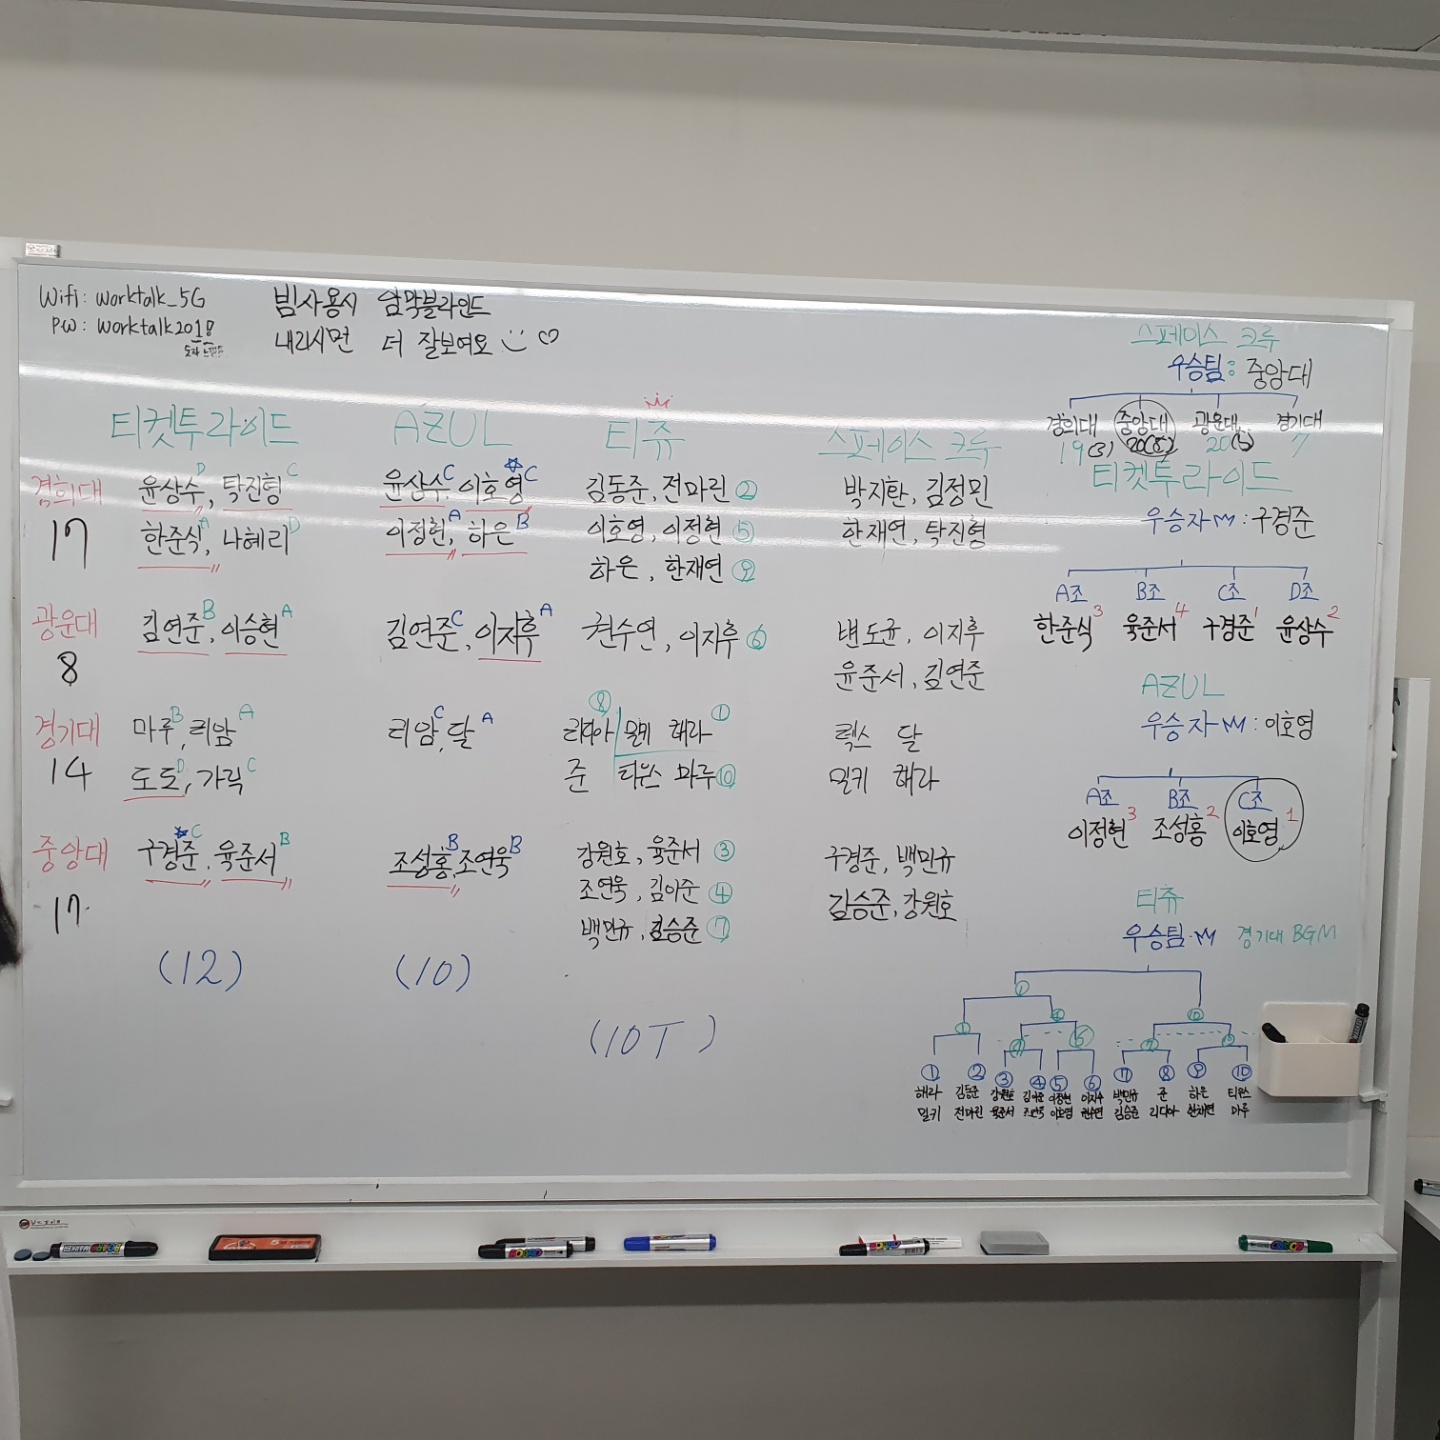 Wifi: worktalk_5G
PW: worktalk2018
빔사용시 암막블라인드
내리시면 더 잘보여요
티켓투라이드
AZUL
티츄
스페이스 크루
경희대
17
윤상수 D, 탁진형 C
한준식 A, 나혜리 D
윤상수 C, 이호영 C
이정현 A, 하은 B
김동준, 전마린 ②
이호영, 이정현 ⑤
하은, 한재연 ⑨
박지환, 김정민
한재연, 탁진형
광운대
8
김연준 B, 이승현 A
김연준 C, 이지후 A
권수연, 이지후 ⑥
변도균, 이지후
윤준서, 김연준
경기대
14
마루 B, 리암 A
도토 D, 가락 C
리암 C, 달 A
⑧ 리다아 준
밀키 해라 ①
티원스 마루 ⑩
렉스 달
밀키 해라
중앙대
17
구경준 C, 육준서 B
조성홍 B, 조연욱 B
강원호, 육준서 ③
조연욱, 김이준 ④
백민규, 김승준 ⑦
구경준, 백민규
김승준, 강원호
(12)
(10)
(10T)
스페이스 크루
우승팀: 중앙대
경희대 중앙대 광운대 경기대
19(3) 20 7
티켓투라이드
우승자: 구경준
A조 B조 C조 D조
한준식 3 육준서 4 구경준 1 윤상수 2
AZUL
우승자: 이호영
A조 B조 C조
이정현 3 조성홍 2 이호영 1
티츄
우승팀 경기대 BGM
① ⑩
① ④ ⑤
① ② ③ ④ ⑤ ⑥ ⑦ ⑧ ⑨ ⑩
해라 김동준 이정현 이지후 백민규 준 하은 마루
밀키 전마린 육준서 이호영 김승준 리다아 한재연